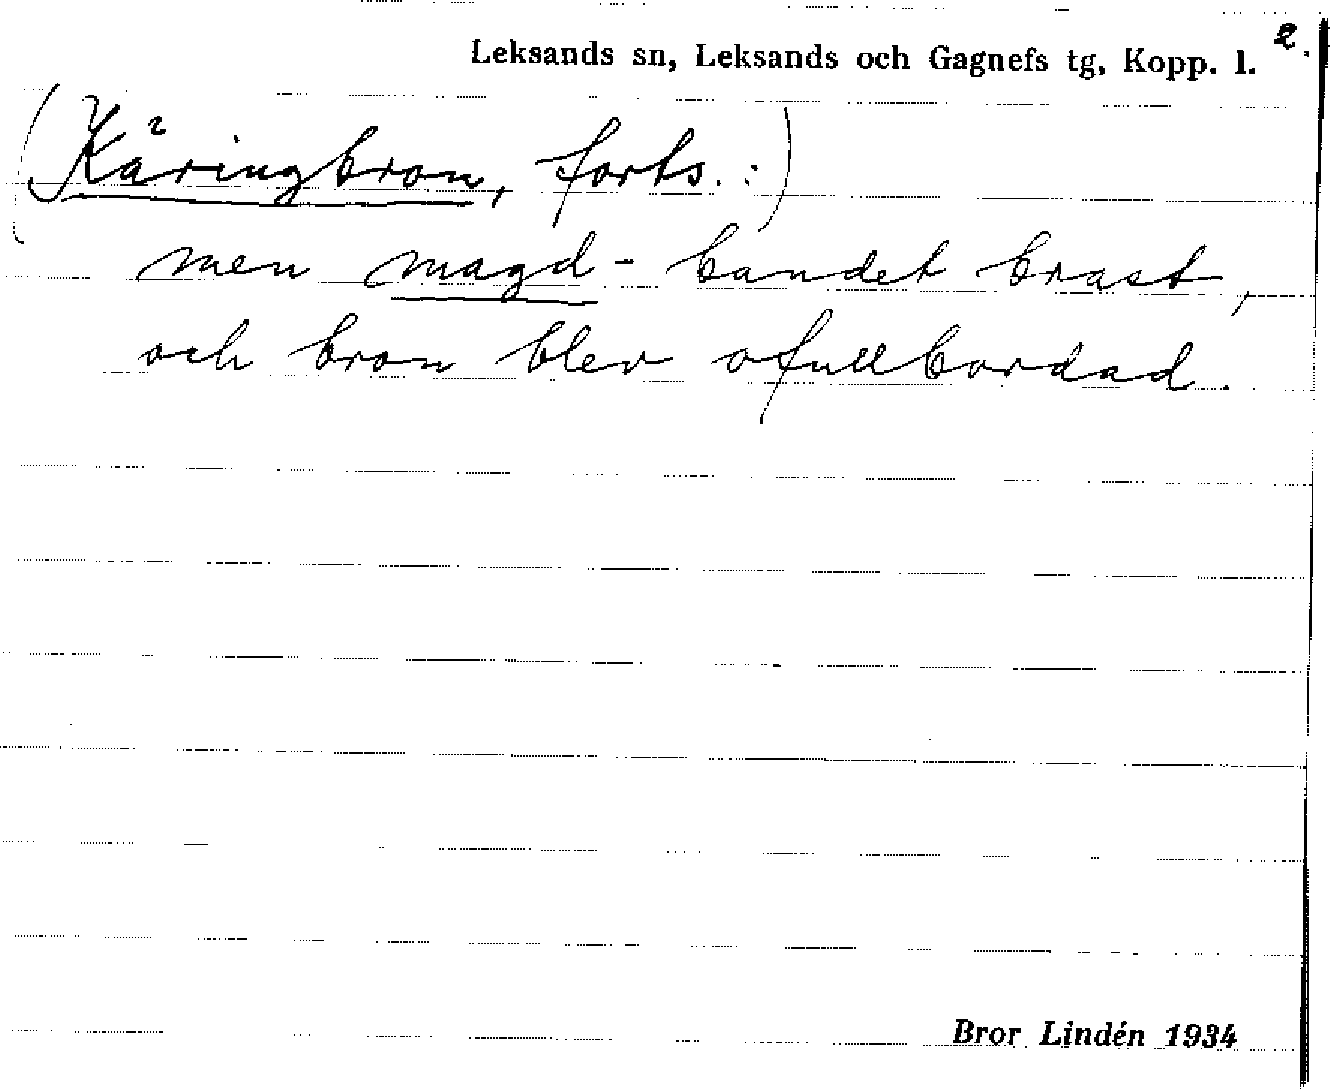 Leksands sn, Leksands och Gagnefs tg, Kopp. l. 2.
(Käringbron, forts.:)
men magd-bandet brast,
och bron blev ofullbordad.
Bror Lindén 1934